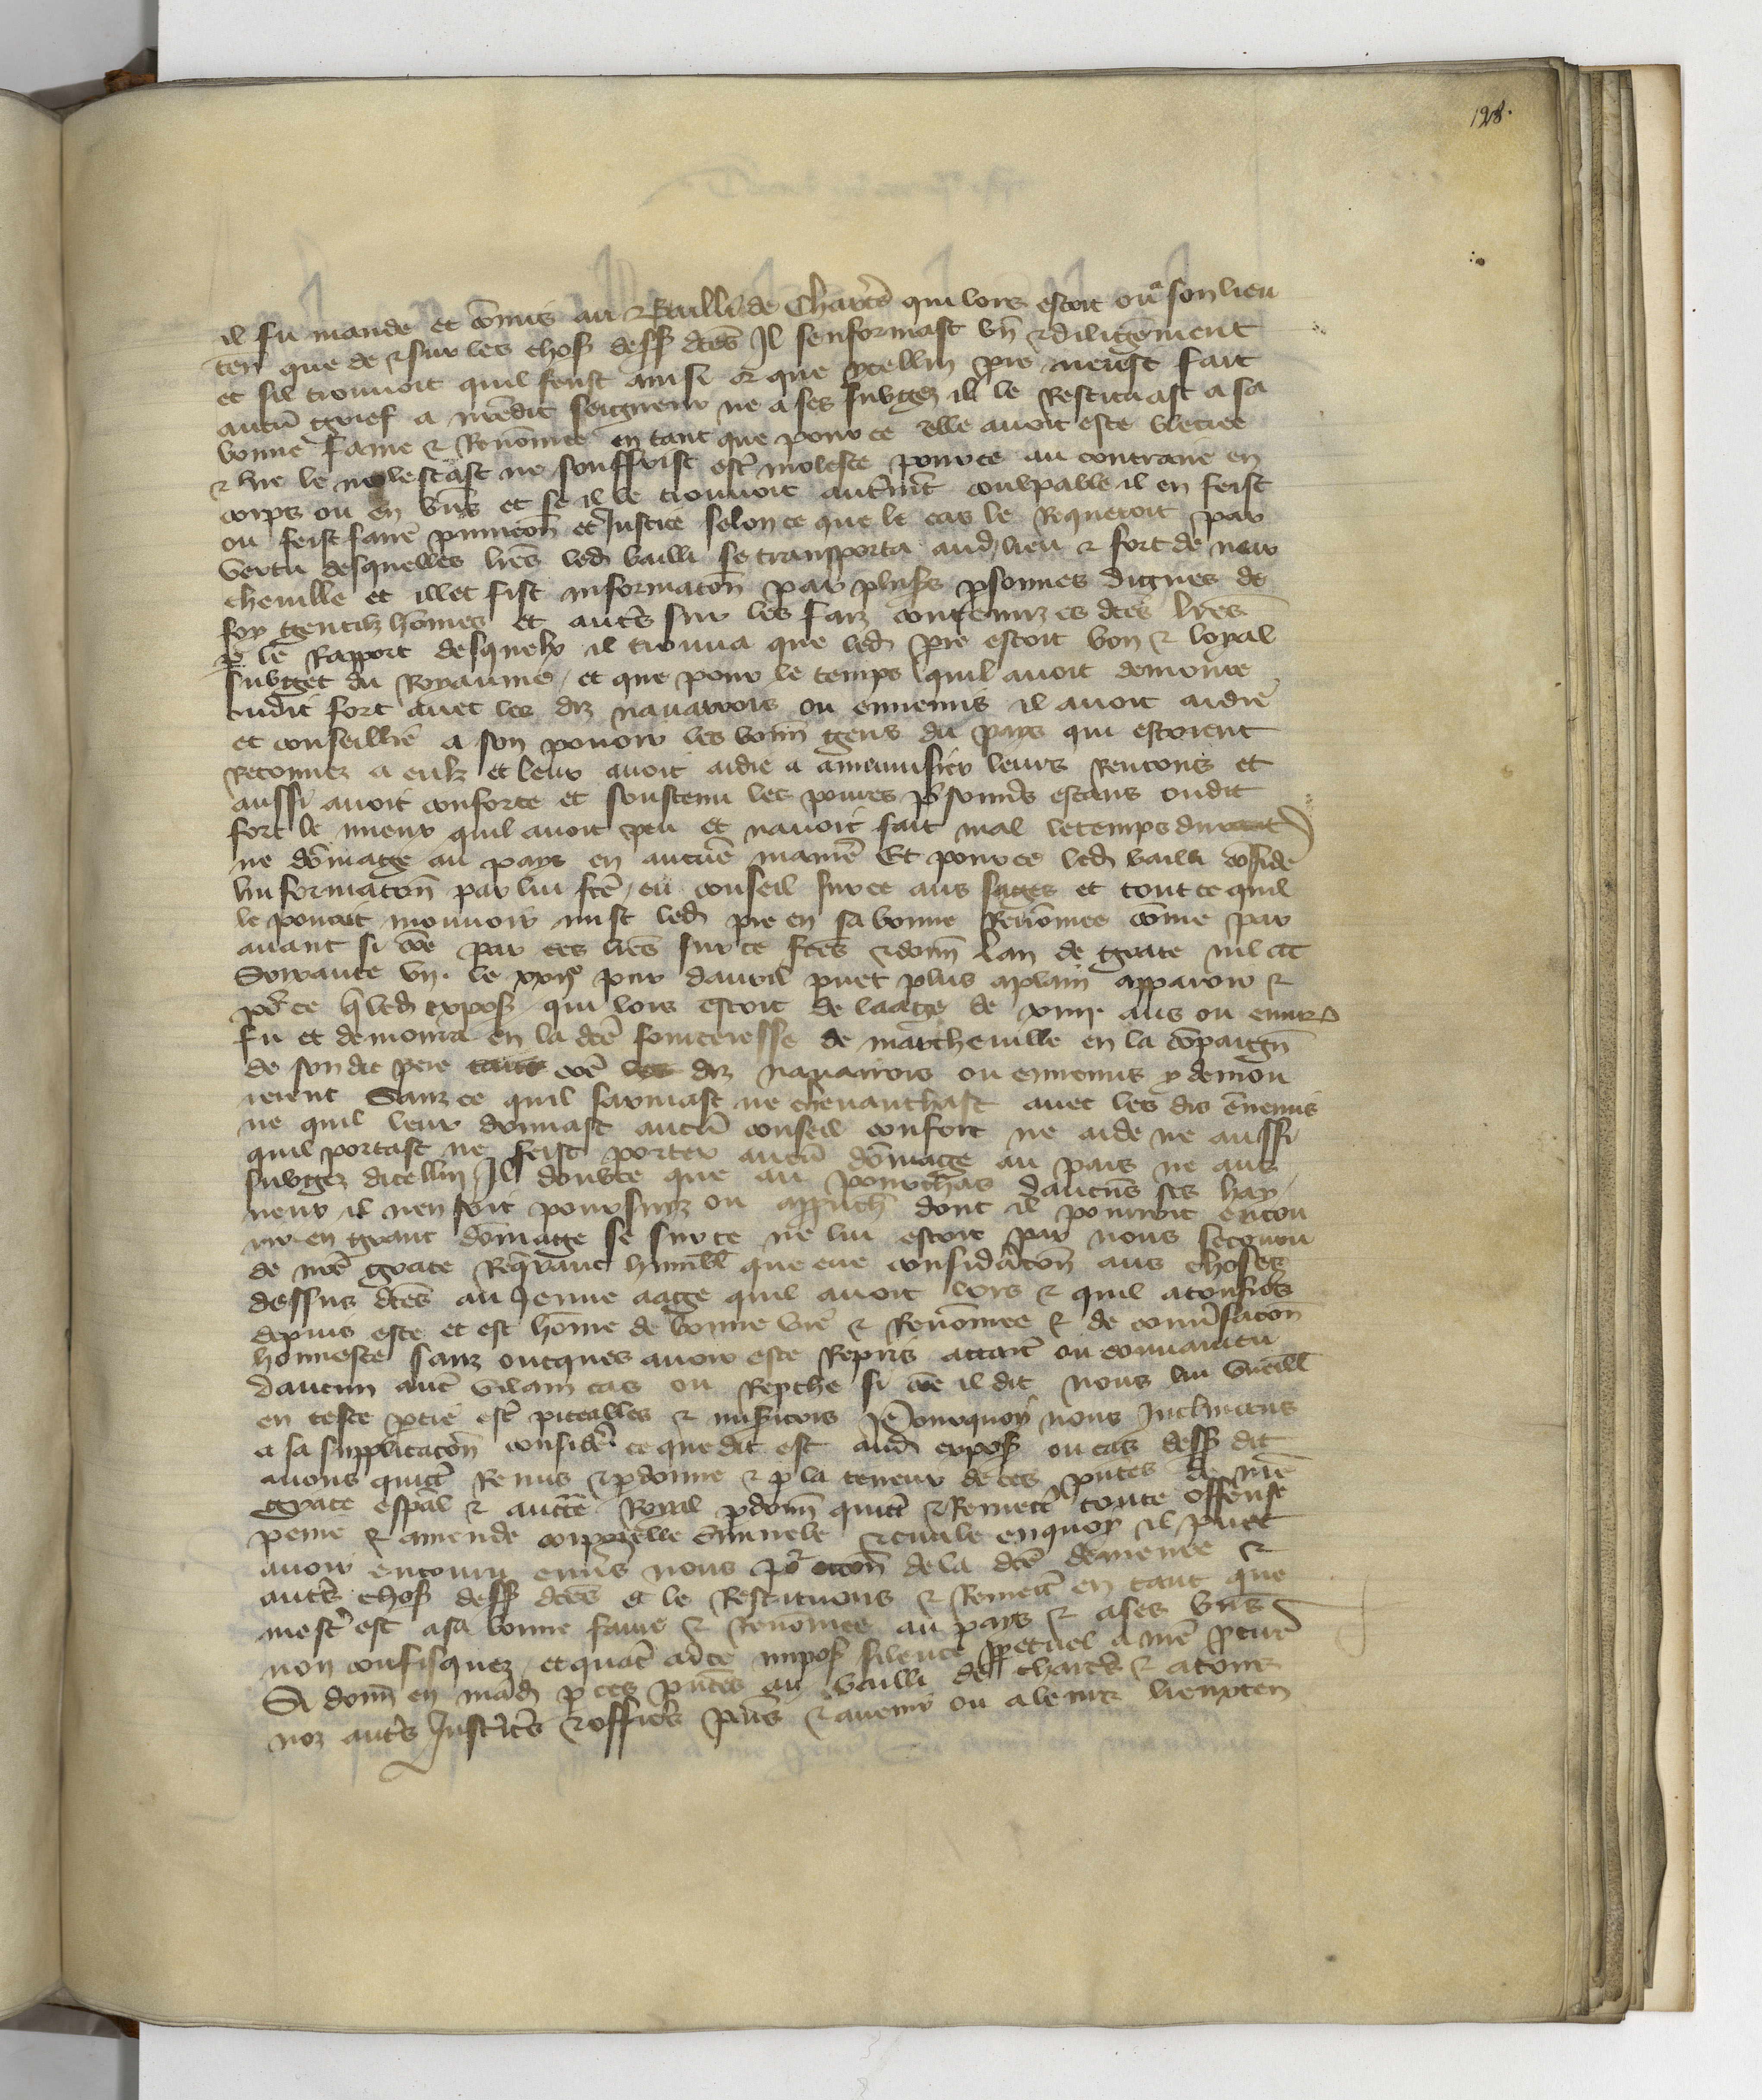 128.
il fu mande et cōmis au Bailli de Chartˢ qui lors estoit ou a son lieu
ten̄ que de & sur les chos̄ dess̄ dc̄es Il senformast bn̄ & diligēment
et sil trouuoit quil feust ainsi & que ycellui pr̄e neust fait
aucū grief a nr̄edit seigneur ne a ses subgez il le Restituast a sa
bonne fame & Renōmee en tant que pour ce elle auoit este bleciee
& ne le molestast ne souffrist estr̄ moleste pour ce au contraire en
corps ou en bn̄s et se il le trouuoit autr̄mt̄ coulpable il en feist
ou feist faire punicōn et Justice selon ce que le cas le Requeroit par
vertu desquelles lr̄es led̄ bailli se transporta aud̄ lieu & fort de mar
cheuille et illec fist informacōn par plus̄s psonnes dignes de
foy gentilz hōmes et autrˢ sur les faiz contenuz es dc̄es lr̄es
p le Rapport desquelx il trouua que led̄ pr̄e estoit bon & loyal
subget du Royaume / et que pour le temps quil auoit demoure
oudit fort auec les diz nauarrois ou ennemis il auoit aidie
et conseillie a son pouoir les bonn̄ gens du pays qui estoient
Raconnez a eulx et leur auoit aidie a amenuisier leurs Rencons et
aussi auoit conforte et soustenu les poures psonnes estans oudit
fort le mieux quil auoit peu et nauoit fait mal le temps durant
ne dōmage au pays en aucune maniē Et pour ce led̄ bailli cōsidr̄e
linformacōn par lui fcē / eu conseil sur ce aus sages et tout ce quil
le pouoit mouuoir mist led̄ pr̄e en sa bonne Renōmee cōme par
auant si cōe par ces lr̄es sur ce fc̄es & donn̄ Lan de grace mil ccc
Soixante vn. le xxiiᵉ jour dauril puet plus aplain apparoir &
pour ce q̄ led̄ expos̄ qui lors estoit de laage de xiiii. ans ou enuirō
fu et demoura en la dc̄e forteresse de marcheuille en la cōpaign̄
de son dit pere cōe les diz nauarrois ou ennemis y demou
rerent Sanz ce quil sarmast ne cheuauchast auec les dis ēnemis
ne quil leur donnast aucū conseil confort ne aide ne aussi
quil portast ne feist porter aucū dōmage au pais ne aus
subgez dicellui / Il doubte que au pourchas daucūs ses hay
neux il nen soit poursuiz ou approch̄ dont il pourroit encou
rir en grant dōmage se sur ce ne lui estoit par nous secouru
de nr̄e grace Req̄rant humbl̄ que eue considr̄acōn aus choses
dessus dc̄es au Jeune aage quil auoit lors & quil a tousiōs
depuis este et est hōme de bonne vie & Renōmee & de conu̾sacōn
honneste sanz oncques auoir este Repris attaīt ou conuaincu
daucun autr̄ vilain cas ou Repche si cōe il dit nous lui vueill̄
en ceste ptie estr̄ piteables & mis̾icors Pourquoy nous Inclinans
a sa supplicacōn consider̄ ce que dit est aud̄ expos̄ ou cas dess̄ dit
auons quictē Remis & pdonne & p la teneur de ces pn̄tes de nr̄e
grace esp̄al & aucte̅ Royal pdonn̄ quictˢ & Remectˢ toute offense
peine & amende corporelle criminele & ciuile en quoy il puet
auoir encouru enu̾s nous pour occōn de la dc̄e demeure &
autrˢ chos̄ dess̄ dc̄es et le Restituons & Remectˢ en tant que
mestr̄ est a sa bonne fame & Renōmee au pays & a ses bn̄s
non confisquez / et quāt ad ce impos̄ silence ppetuel a nr̄e pcur̄
Si donn̄ en mād̄ p ces pn̄tes au bailli de chartrˢ & a touz
noz autrˢ Justicˢ & officˢ pn̄s & auenir ou a leurs lieuxten̄